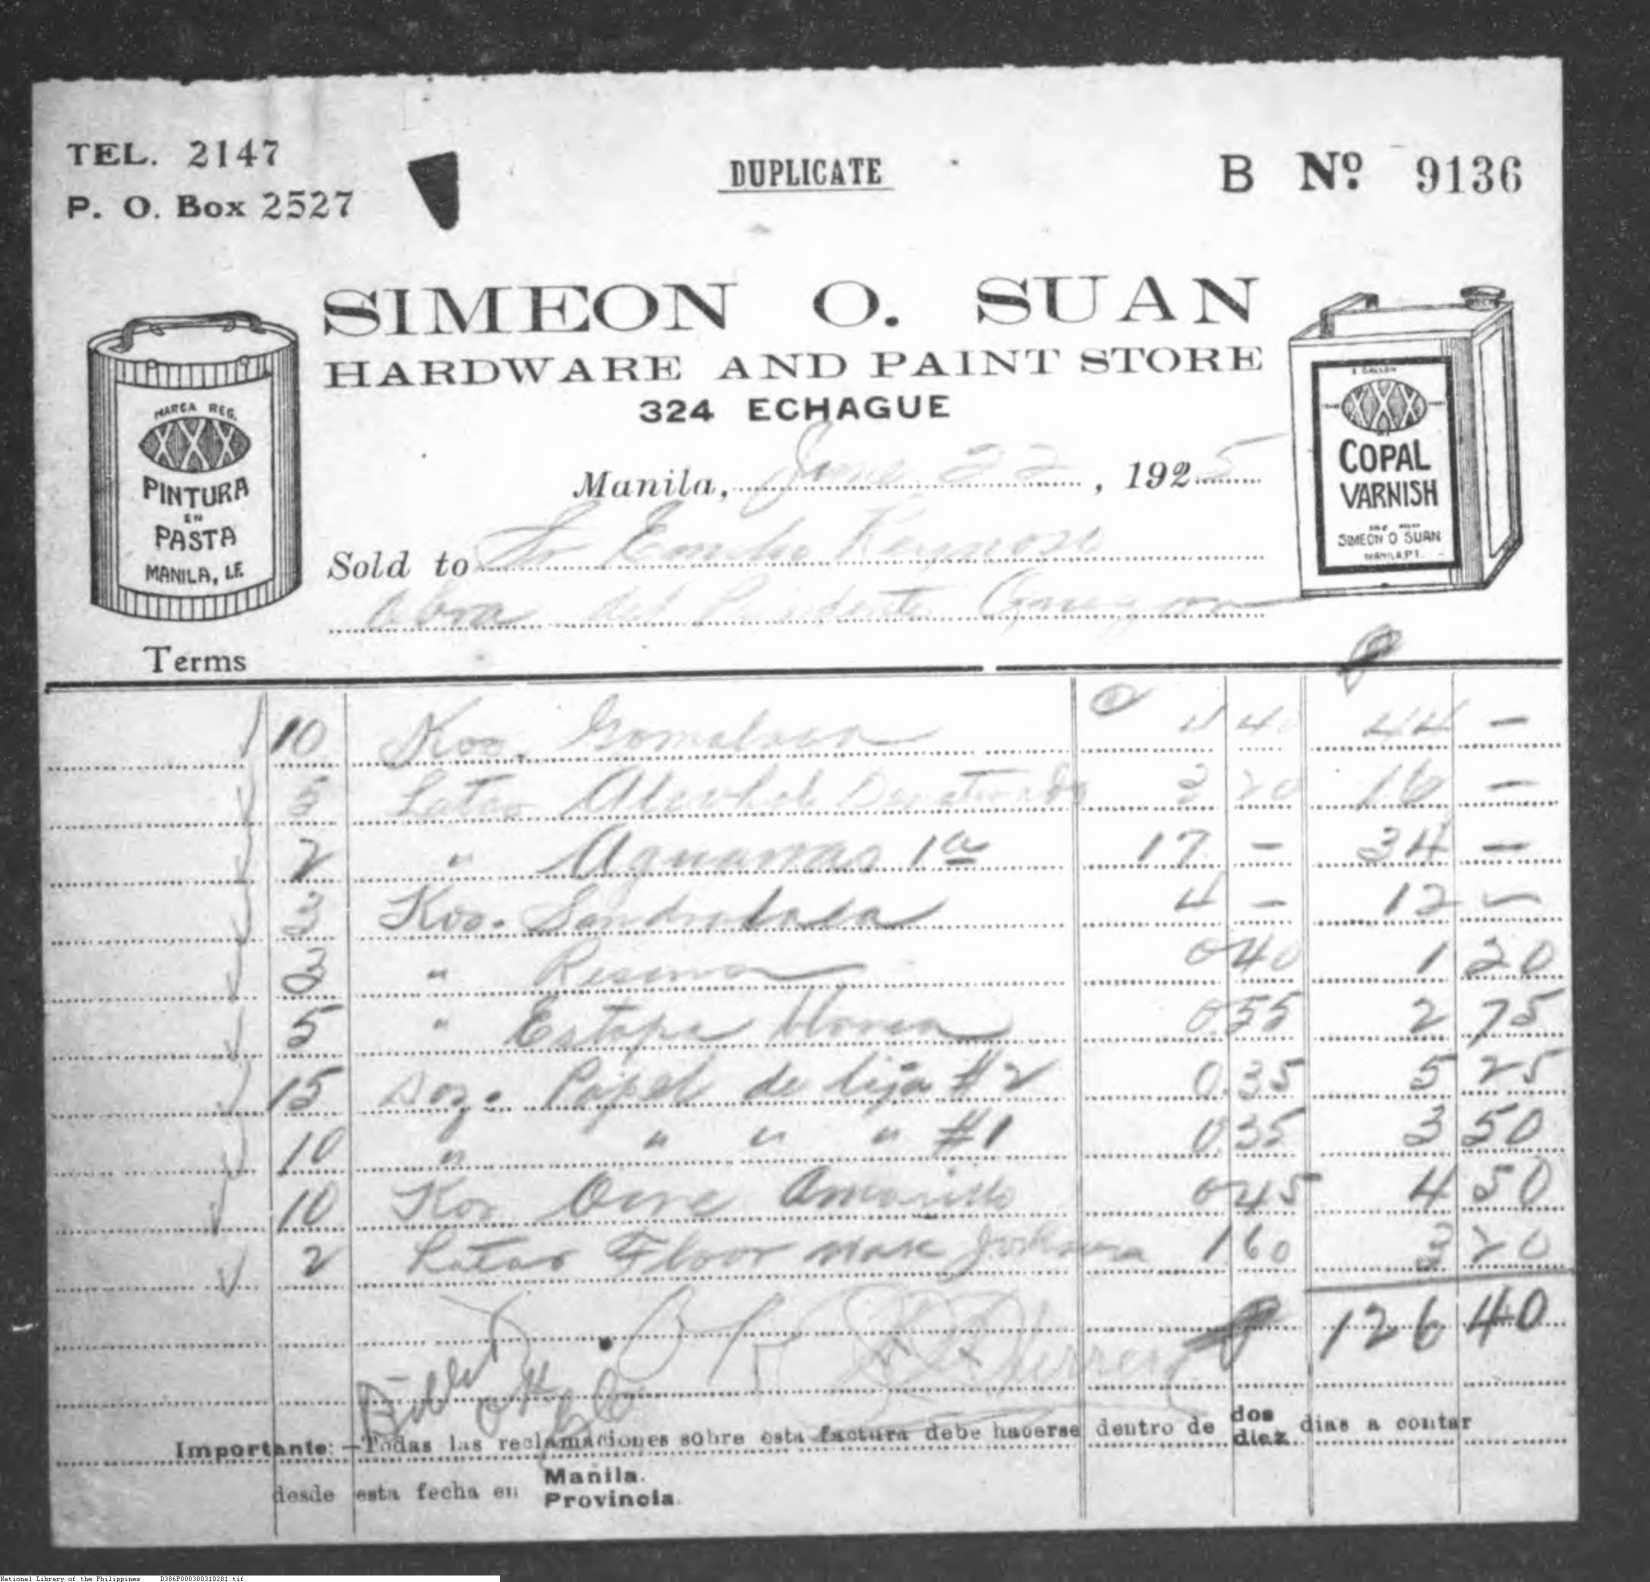 TEL. 2147
P. O. Box 2527
DUPLICATE
B Nº 9136
SIMEON O. SUAN
HARDWARE AND PAINT STORE
324 ECHAGUE
MARCA REG.
PINTURA
EN
PASTA
MANILA, I.F.
COPAL
VARNISH
SIMEON O SUAN
MANILA P.I.
Manila, June 22, 1925
Sold to Sr
Obra del Presidente
Terms
10 Kos. Gomalaca 4 40 44 —
5 Latas Alcohol 3 20 16 —
2 " Aguarras 1a 17 — 34 —
3 Kos. Sandralaca 4 — 12 —
3 " Resina 0 40 1 20
5 " Estopa blanca 0.55 2 75
15 Doz. Papel de lija #2 0.35 5 25
10 " " " " #1 0.35 3 50
10 Kos Ocre Amarillo 0 45 4 50
2 Latas Floor wax 1 60 3 20
126 40
OK
Importante: —Todas las reclamaciones sobre esta factura debe hacerse dentro de dos diez dias a contar
desde esta fecha en Manila. Provincia.
National Library of the Philippines D386P000300310281.tif